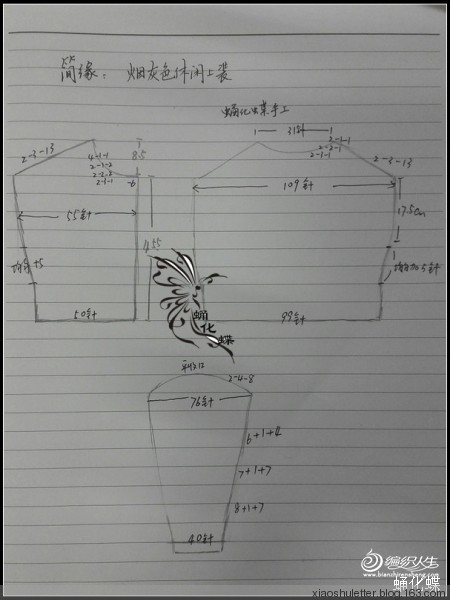 简缘：烟灰色休闲上装
蛹化蝶手工
1 — 31针 — 1
2-1-1
2-2-1
2-1-1
2-3-13
2-3-13
4-1-1
2-3-2
2-2-2
2-1-1
-6
8.5
55针
109针
17.5cm
45.5
+5
均匀加5针
50针
99针
蛹化蝶
2-4-8
76针
6+1+4
7+1+7
8+1+7
40针
编织人生
www.bianzhirensheng.com
蛹化蝶
xiaoshuletter.blog.163.com